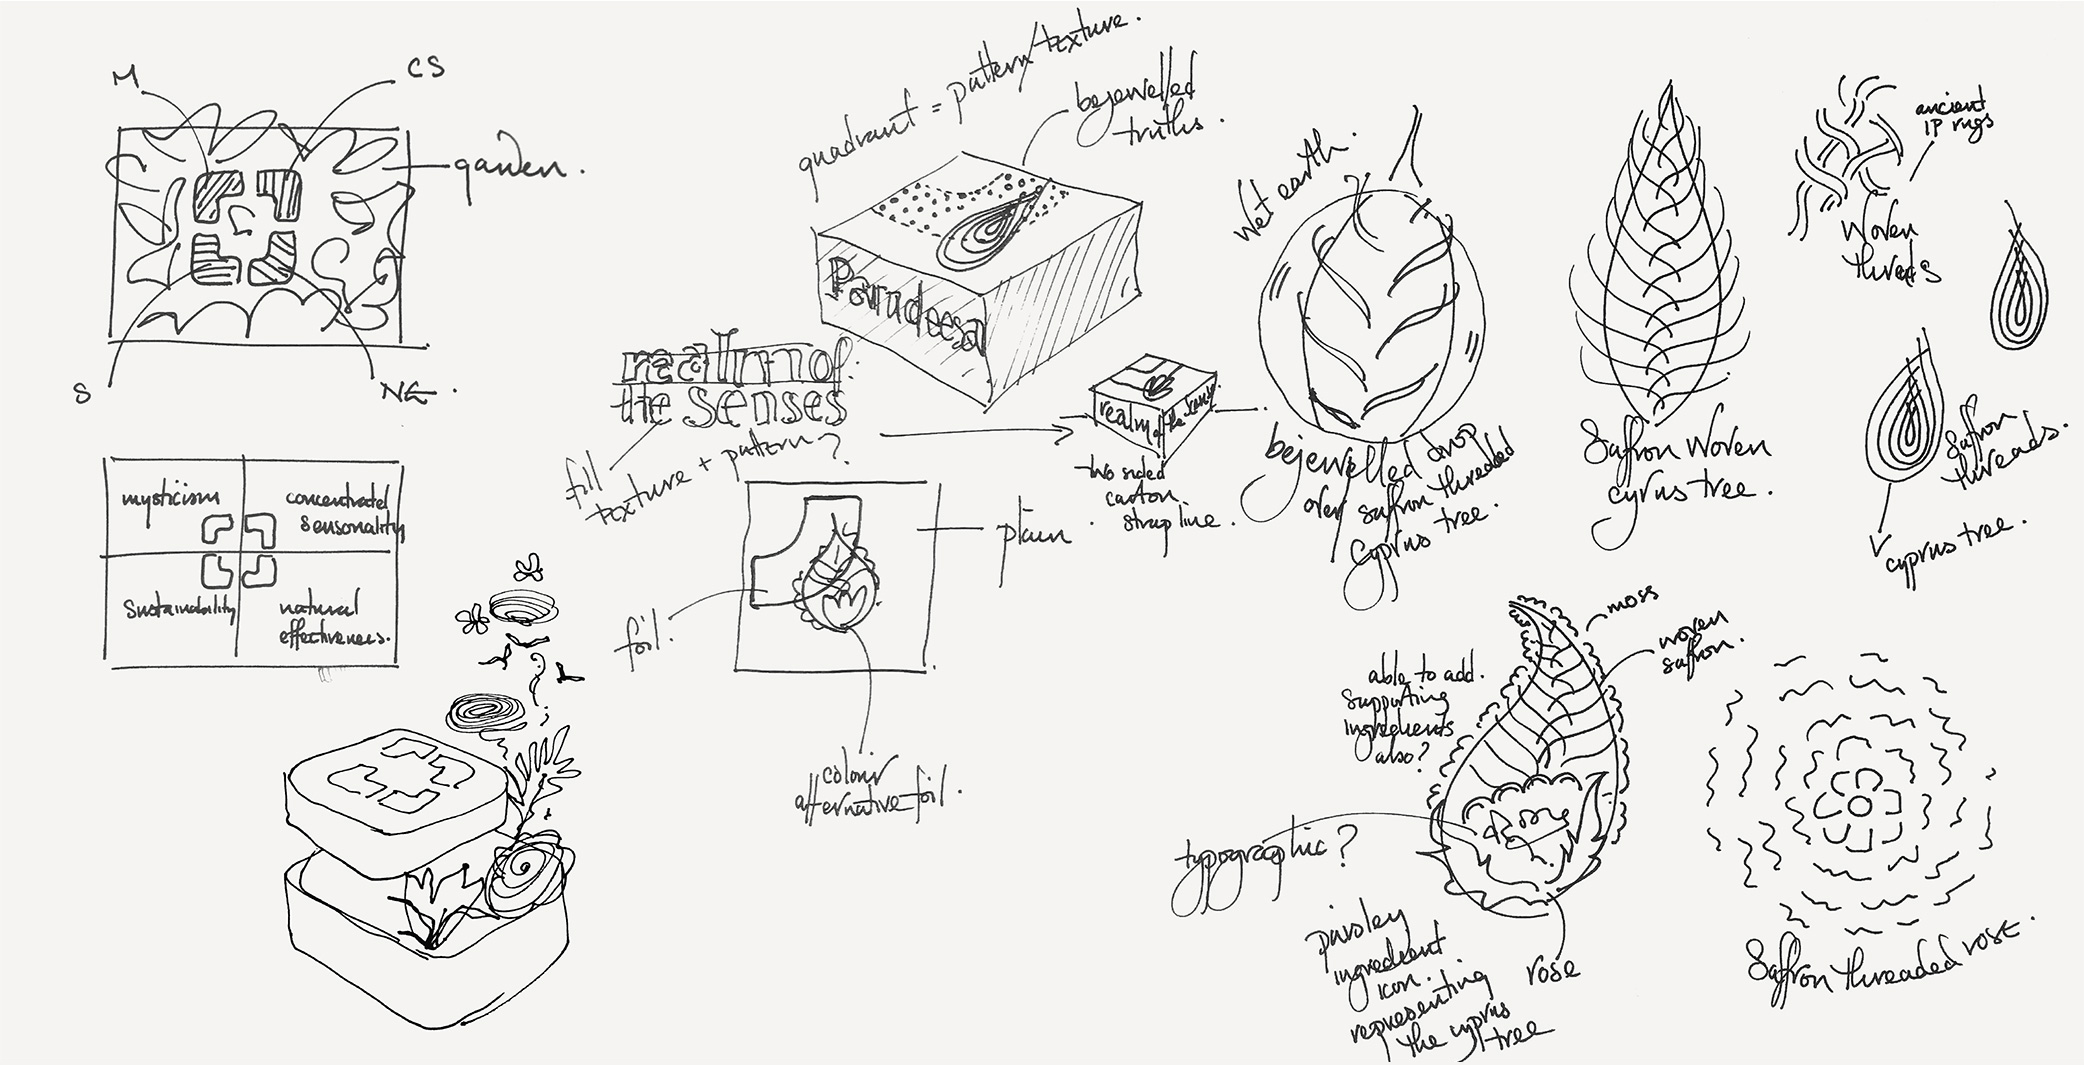 M
CS
garden.
S
NE.
mysticism
concentrated
sensonality
sustainability
natural
effectiveness.
quadrant = pattern/texture.
bejewelled
truths.
Parudeesa
realm of
the senses
fill
texture + pattern?
realm of the senses
two sided
carton
strap line.
plain
foil.
colour
alternative foil.
Wet earth.
bejewelled drop
over saffron threaded
Cyprus tree.
Saffron Woven
cyrus tree.
ancient
IP rugs
Woven
threads
Saffron
threads.
cyprus tree.
moss
woven
saffron.
able to add.
supporting
ingredients
also?
typographic?
Rose
rose
paisley
ingredient
icon.
representing
the cyprus
tree
Saffron threaded rose.